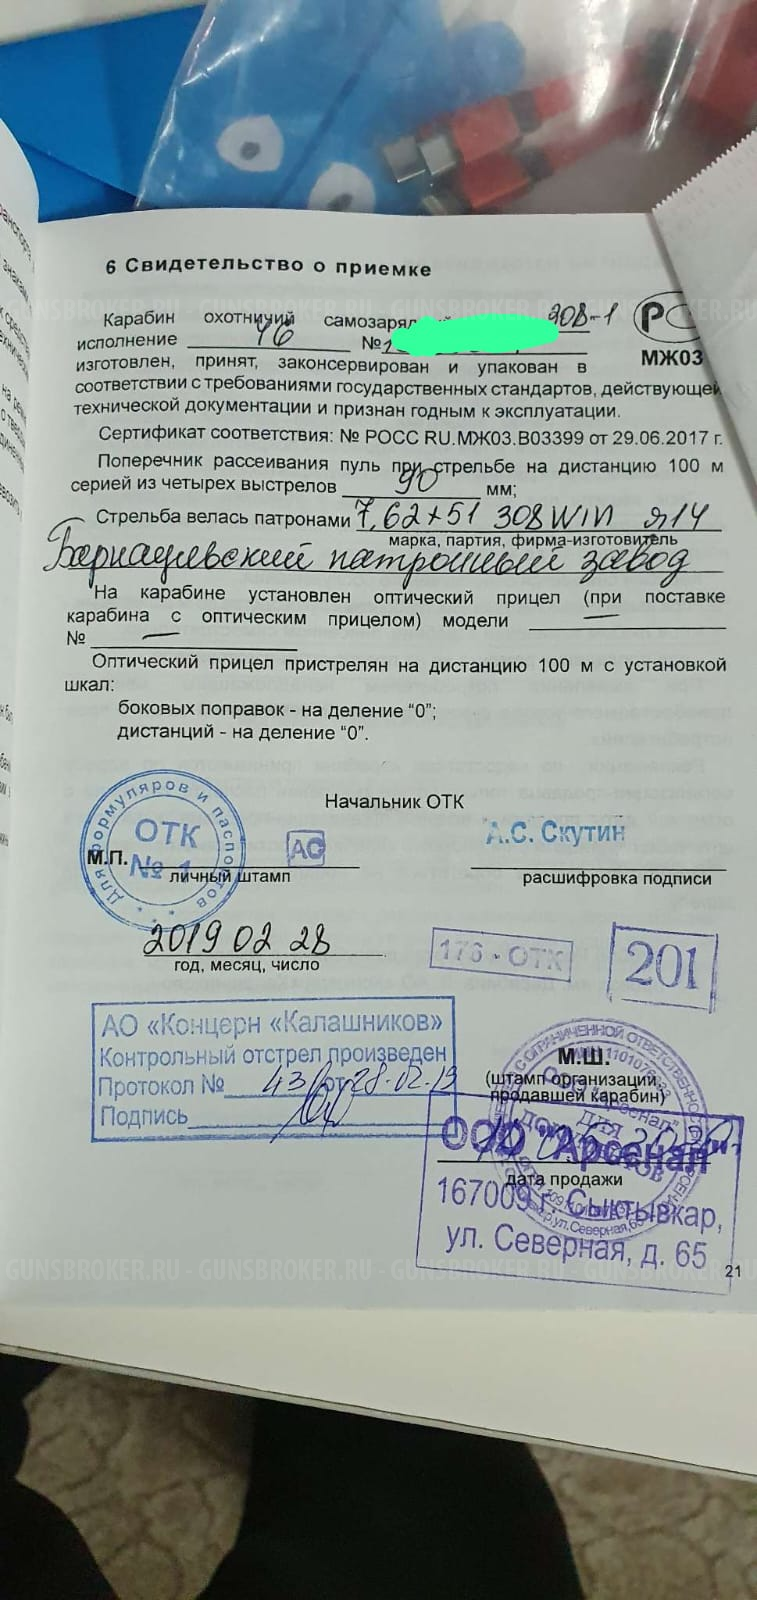 6 Свидетельство о приемке
Карабин охотничий самозаряд 308-1
исполнение 46 №
изготовлен, принят, законсервирован и упакован в
соответствии с требованиями государственных стандартов, действующей
технической документации и признан годным к эксплуатации.
МЖ03
Сертификат соответствия: № РОСС RU.МЖ03.В03399 от 29.06.2017 г.
Поперечник рассеивания пуль при стрельбе на дистанцию 100 м
серией из четырех выстрелов 90 мм;
Стрельба велась патронами 7,62×51 308WIN я14
марка, партия, фирма-изготовитель
Барнаульский патронный завод
На карабине установлен оптический прицел (при поставке
карабина с оптическим прицелом) модели —
№ —
Оптический прицел пристрелян на дистанцию 100 м с установкой
шкал:
боковых поправок - на деление “0”;
дистанций - на деление “0”.
Начальник ОТК
Для формуляров и паспортов
ОТК
№ 1
М.П.
АС
А.С. Скутин
личный штамп
расшифровка подписи
2019 02 28
год, месяц, число
176 - ОТК
201
АО «Концерн «Калашников»
Контрольный отстрел произведен
Протокол № 43 от 28.02.19
Подпись
М.Ш.
(штамп организации,
продавшей карабин)
ООО "Арсенал"
дата продажи
167009 г. Сыктывкар,
ул. Северная, д. 65
21
GUNSBROKER.RU - GUNSBROKER.RU - GUNSBROKER.RU - GUNSBROKER.RU